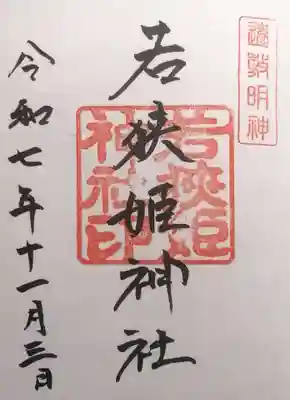 遠敷明神
若狭姫神社
若狭姫神社印
令和七年十一月三日